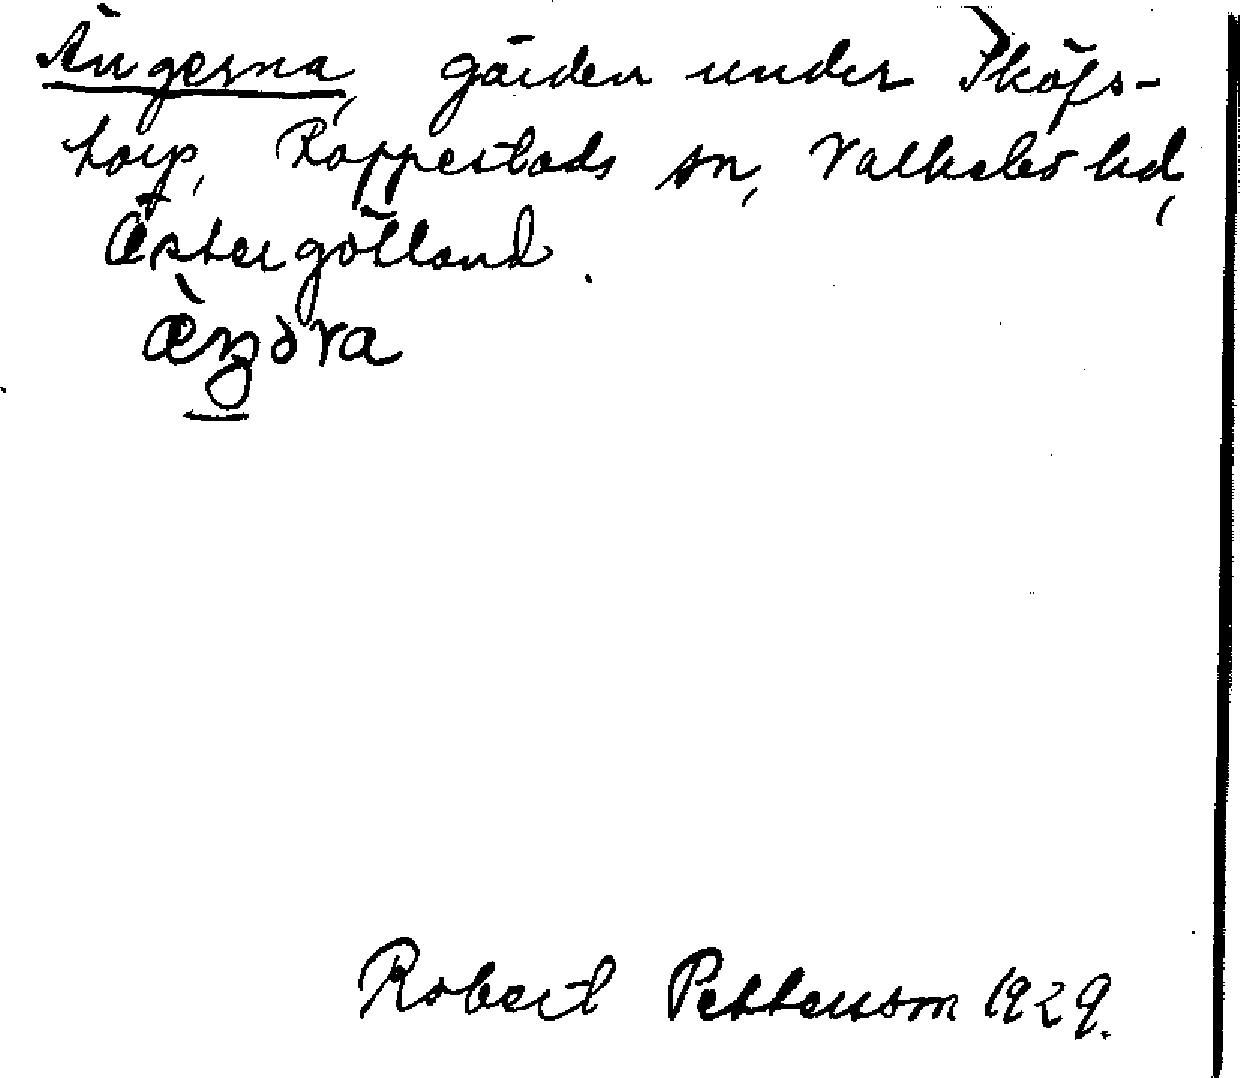 Ängerna, gården under Sköfs-
torp, Rappestads sn, Valkebo hd,
Östergötland.
Robert Petterson 1929.